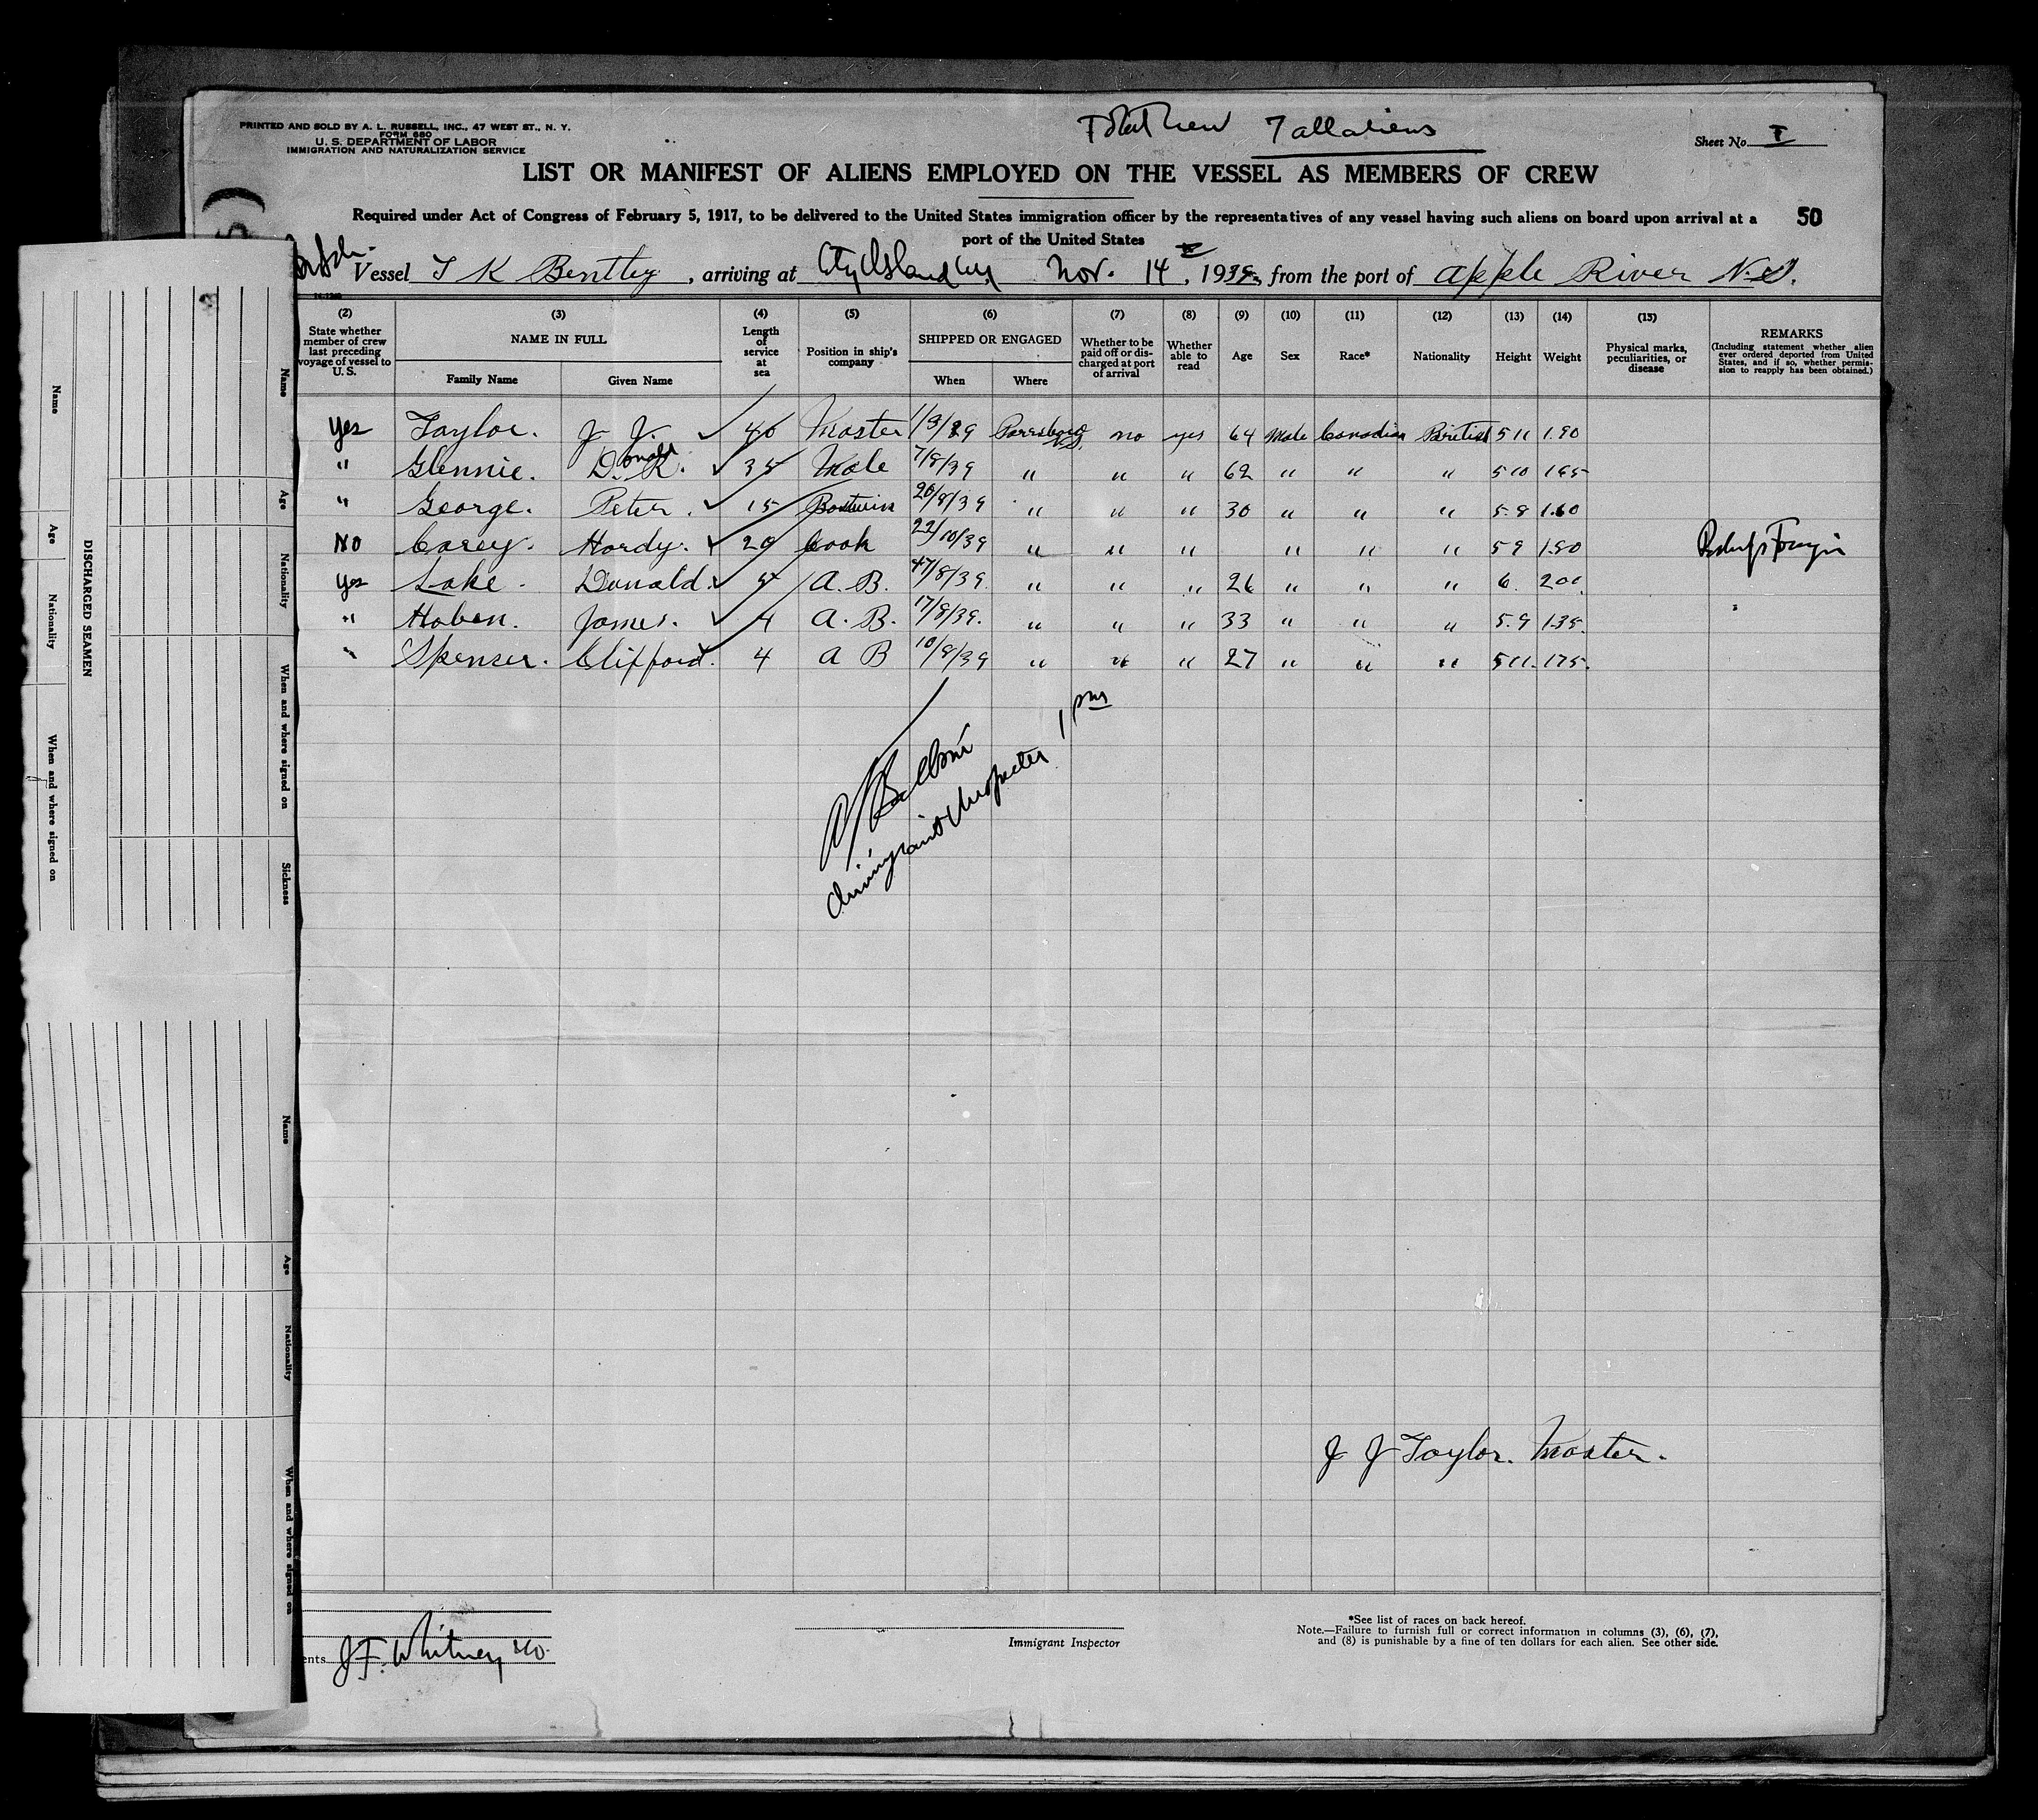 PRINTED AND SOLD BY A. L. RUSSELL, INC., 47 WEST ST., N. Y.
FORM 680
U. S. DEPARTMENT OF LABOR
IMMIGRATION AND NATURALIZATION SERVICE
Total Crew 7 all aliens
Sheet No. I
LIST OR MANIFEST OF ALIENS EMPLOYED ON THE VESSEL AS MEMBERS OF CREW
Required under Act of Congress of February 5, 1917, to be delivered to the United States immigration officer by the representatives of any vessel having such aliens on board upon arrival at a
port of the United States
50
Vessel T K Bentley, arriving at City Island Nov. 14, 1939, from the port of Apple River N.S.
(2) (3) (4) (5) (6) (7) (8) (9) (10) (11) (12) (13) (14) (15)
State whether member of crew last preceding voyage of vessel to U. S.
NAME IN FULL
Family Name
Given Name
Length of service at sea
Position in ship's company
SHIPPED OR ENGAGED
When
Where
Whether to be paid off or discharged at port of arrival
Whether able to read
Age
Sex
Race*
Nationality
Height
Weight
Physical marks, peculiarities, or disease
REMARKS
(Including statement whether alien ever ordered deported from United States, and if so, whether permission to reapply has been obtained.)
Yes Taylor. J J. 40 Master 1/3/39 Parrsboro N.S. no yes 64 Male Canadian British 5 11 1.90
" Glennie. Donald K. 35 Mate 7/8/39 " " " 62 " " " 5 10 165
" George. Peter. 15 Boatswin 20/8/39 " " " 30 " " " 5.8 1.60
No Corey. Hardy. 20 Cook 22/10/39 " " " " " " 5 9 1.80
Yes Lake. Donald. A.B. /8/39 " " " 26 " " " 6. 200
" Hoben. James. 4 A.B. 17/8/39. " " " 33 " " " 5.9 1.35.
" Spenser. Clifford. 4 A B 10/8/39 " " " 27 " " " 5 11. 175.
1 pm
Immigrant Inspector
J J Taylor. Master.
ents J. F. Whitney Co.
Immigrant Inspector
*See list of races on back hereof.
Note.—Failure to furnish full or correct information in columns (3), (6), (7),
and (8) is punishable by a fine of ten dollars for each alien. See other side.
DISCHARGED SEAMEN
Name
Age
Nationality
When and where signed on
Name
Age
Nationality
When and where signed on
Sickness
Name
Age
Nationality
When and where signed on